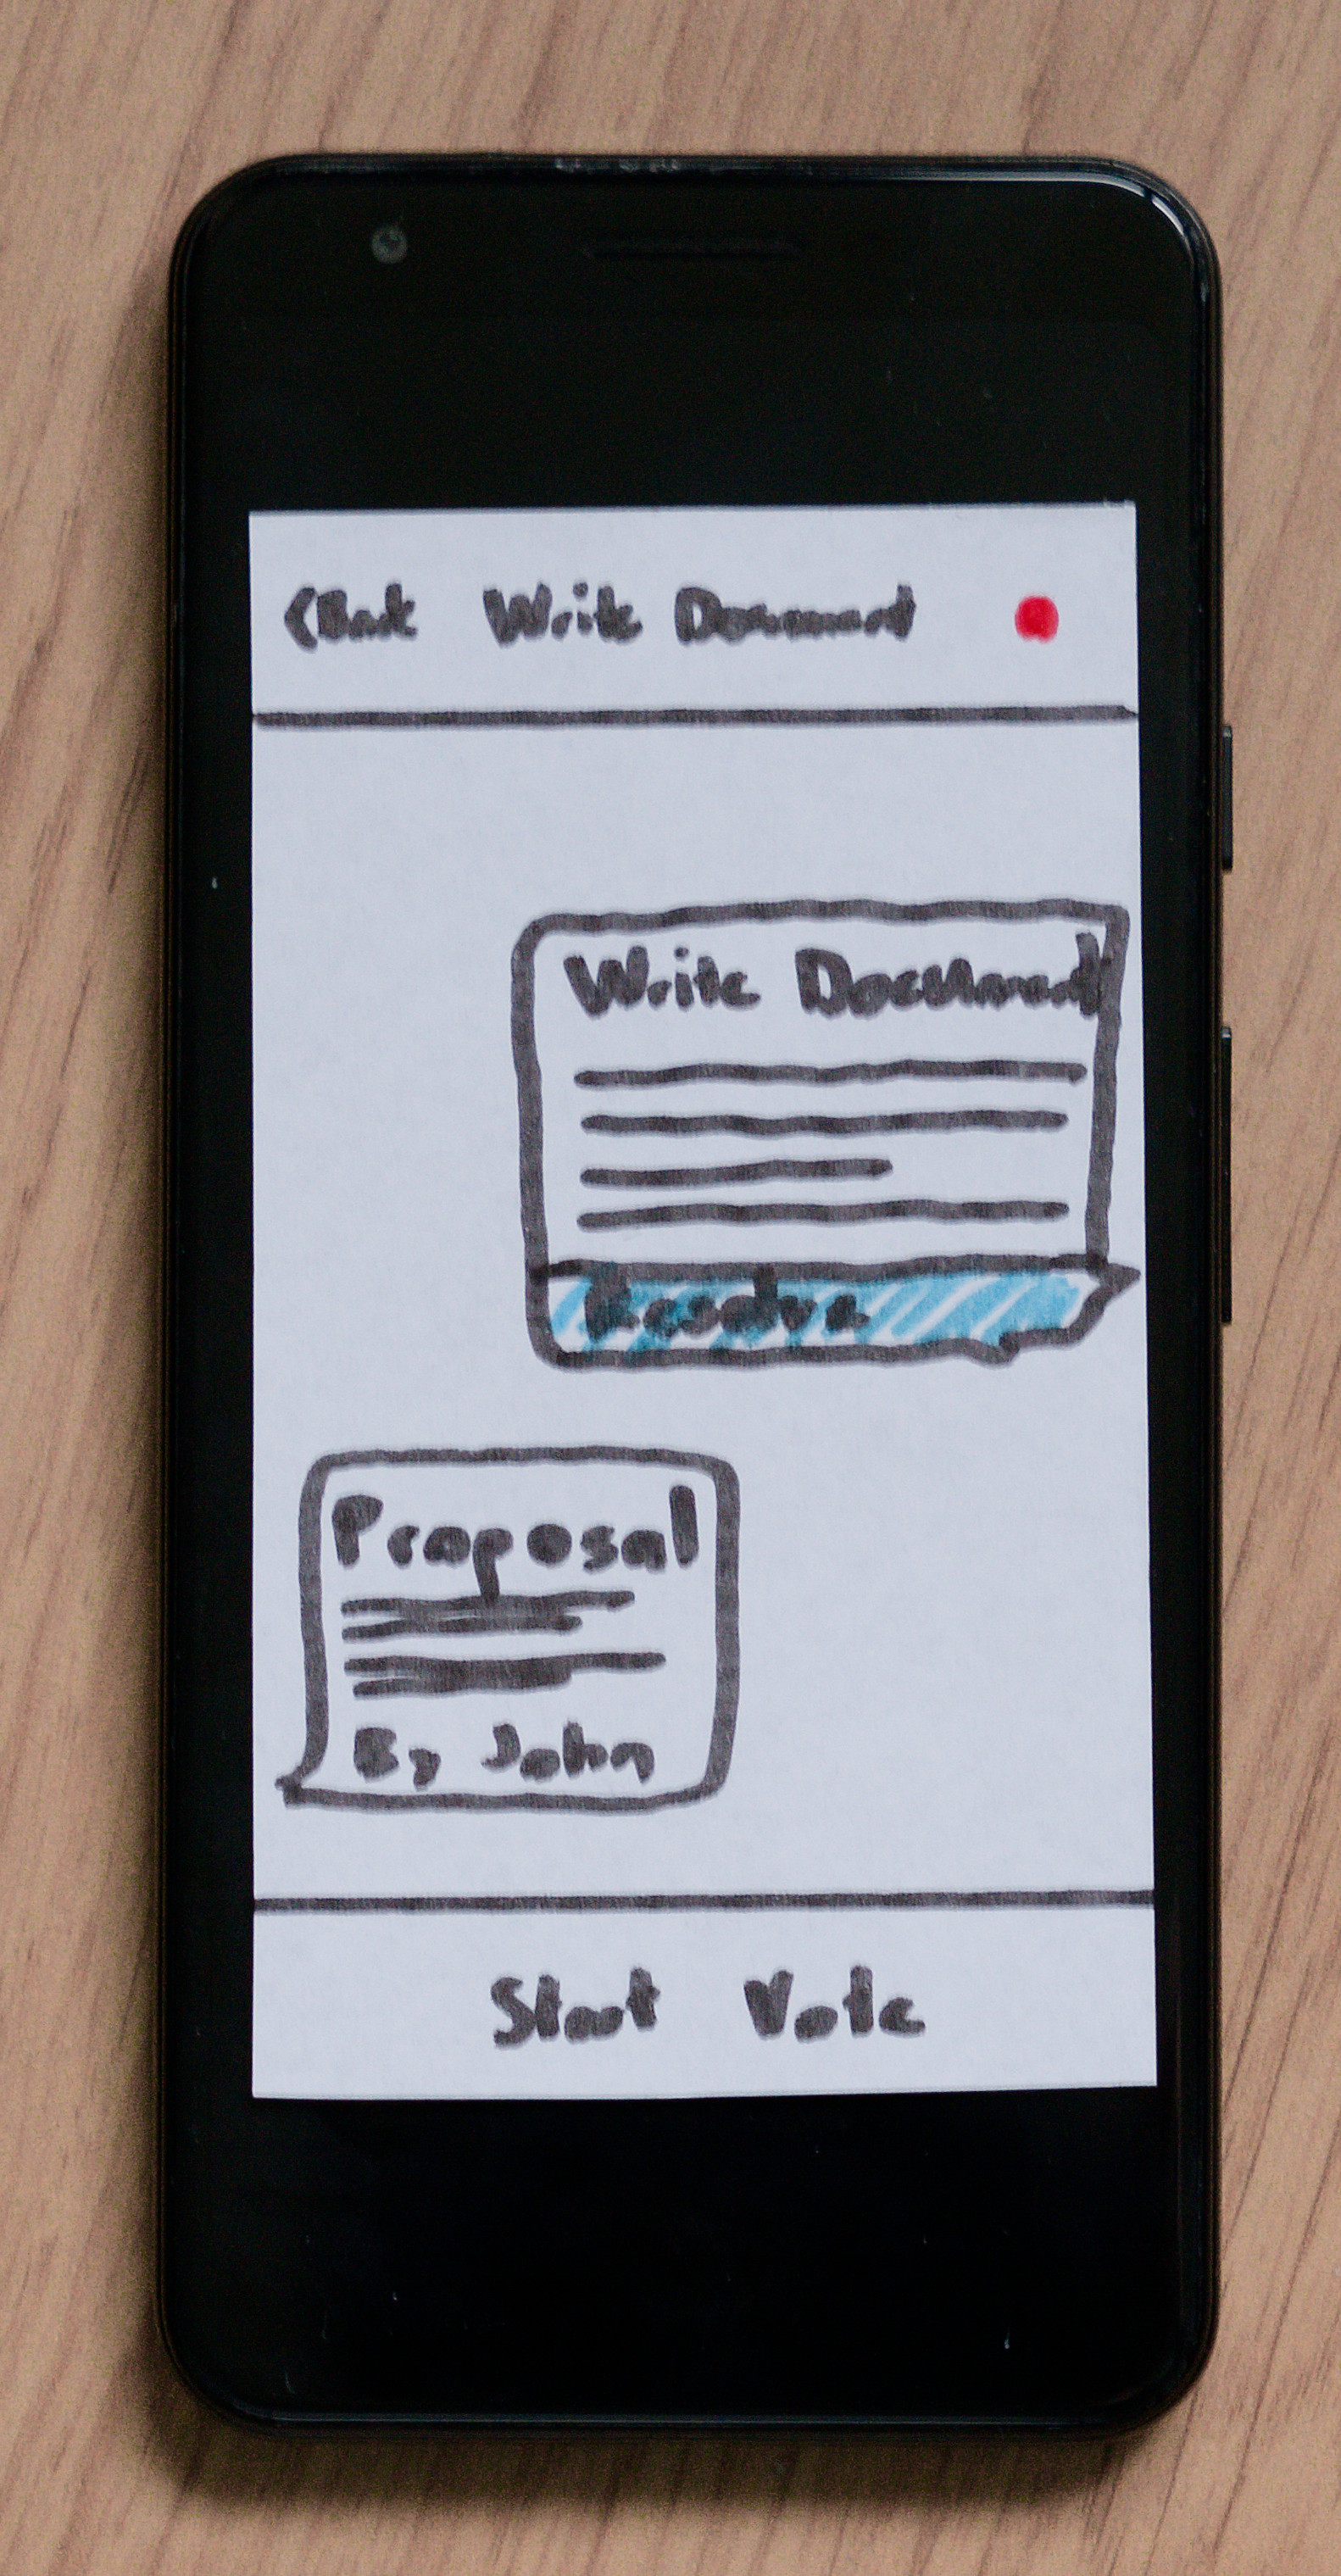 <Back Write Document
Write Document
Resolve
Proposal
By John
Start Vote